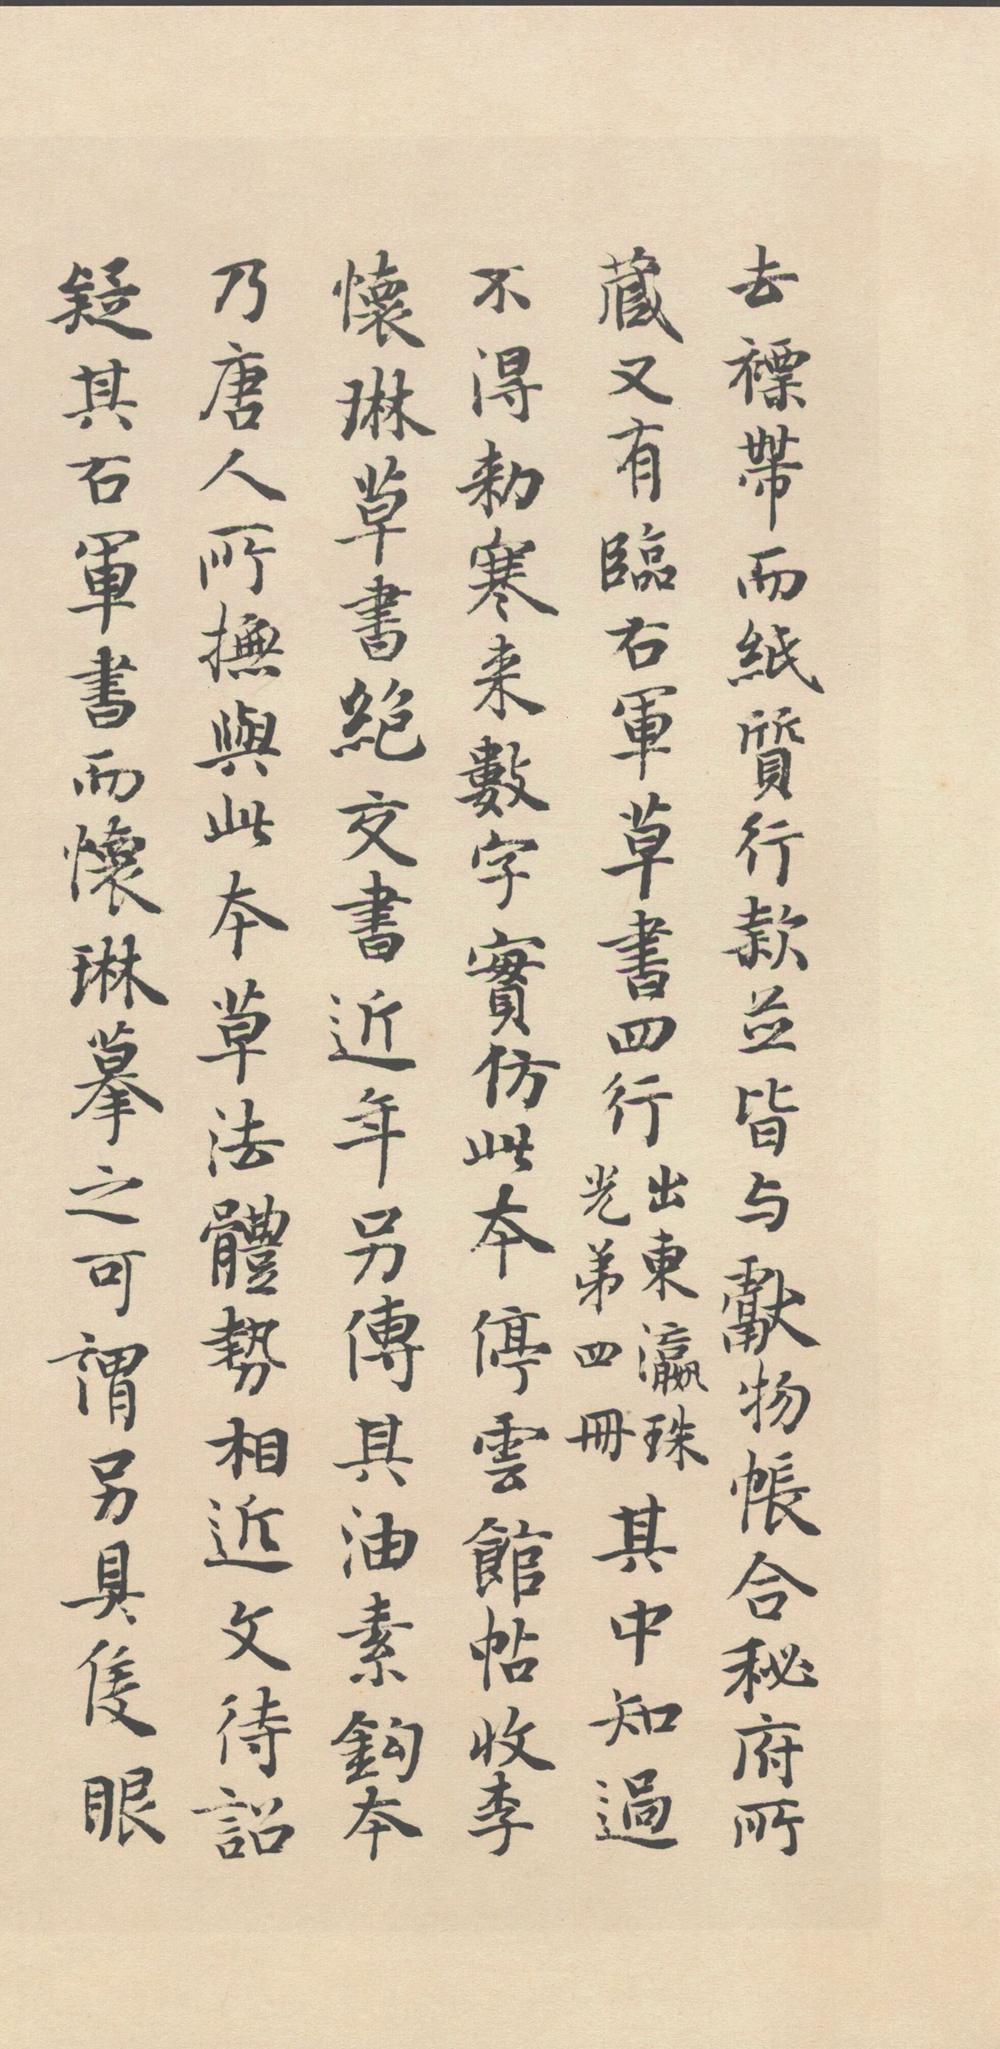 去褾帶而紙質行款並皆与獻物帳合秘府所
藏又有臨右軍草書四行
出東瀛珠
光弟四冊
其中知過
不得勑寒来數字實仿此本停雲館帖收李
懷琳草書絕交書近年另傳其油素鈎本
乃唐人所撫與此本草法體勢相近文待詔
疑其右軍書而懷琳摹之可謂另具隻眼